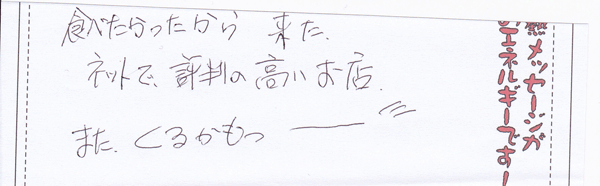 食べたかったから 来た.
ネットで、評判の高いお店.
また、くるかもっ ——
熱メッセージが
エネルギーです!